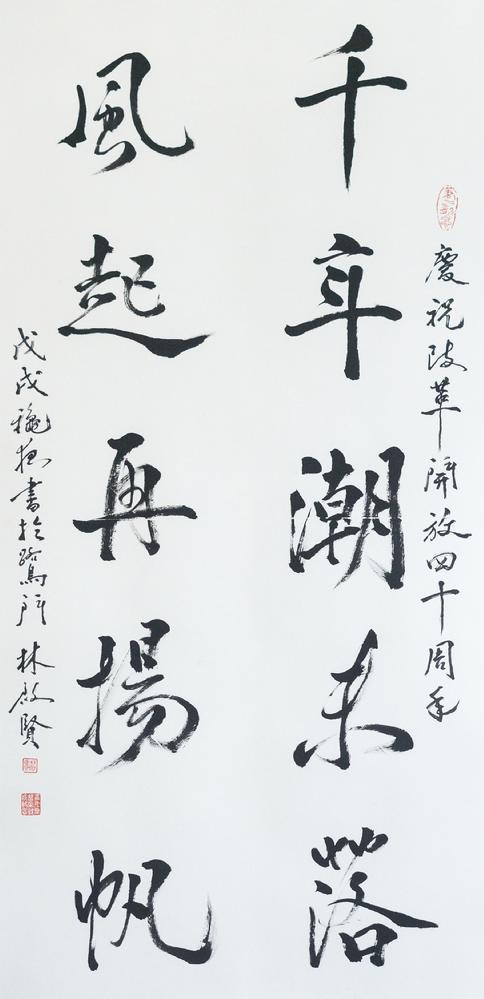 慶祝改革開放四十周年
千年潮未落
風起再揚帆
戊戌龝書於鷺門 林啟賢